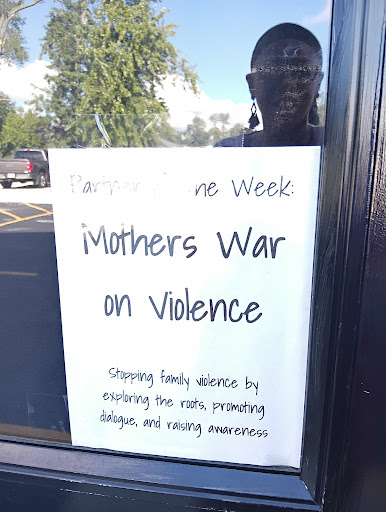 Partner of the Week:
Mothers War
on Violence
Stopping family violence by
exploring the roots, promoting
dialogue, and raising awareness